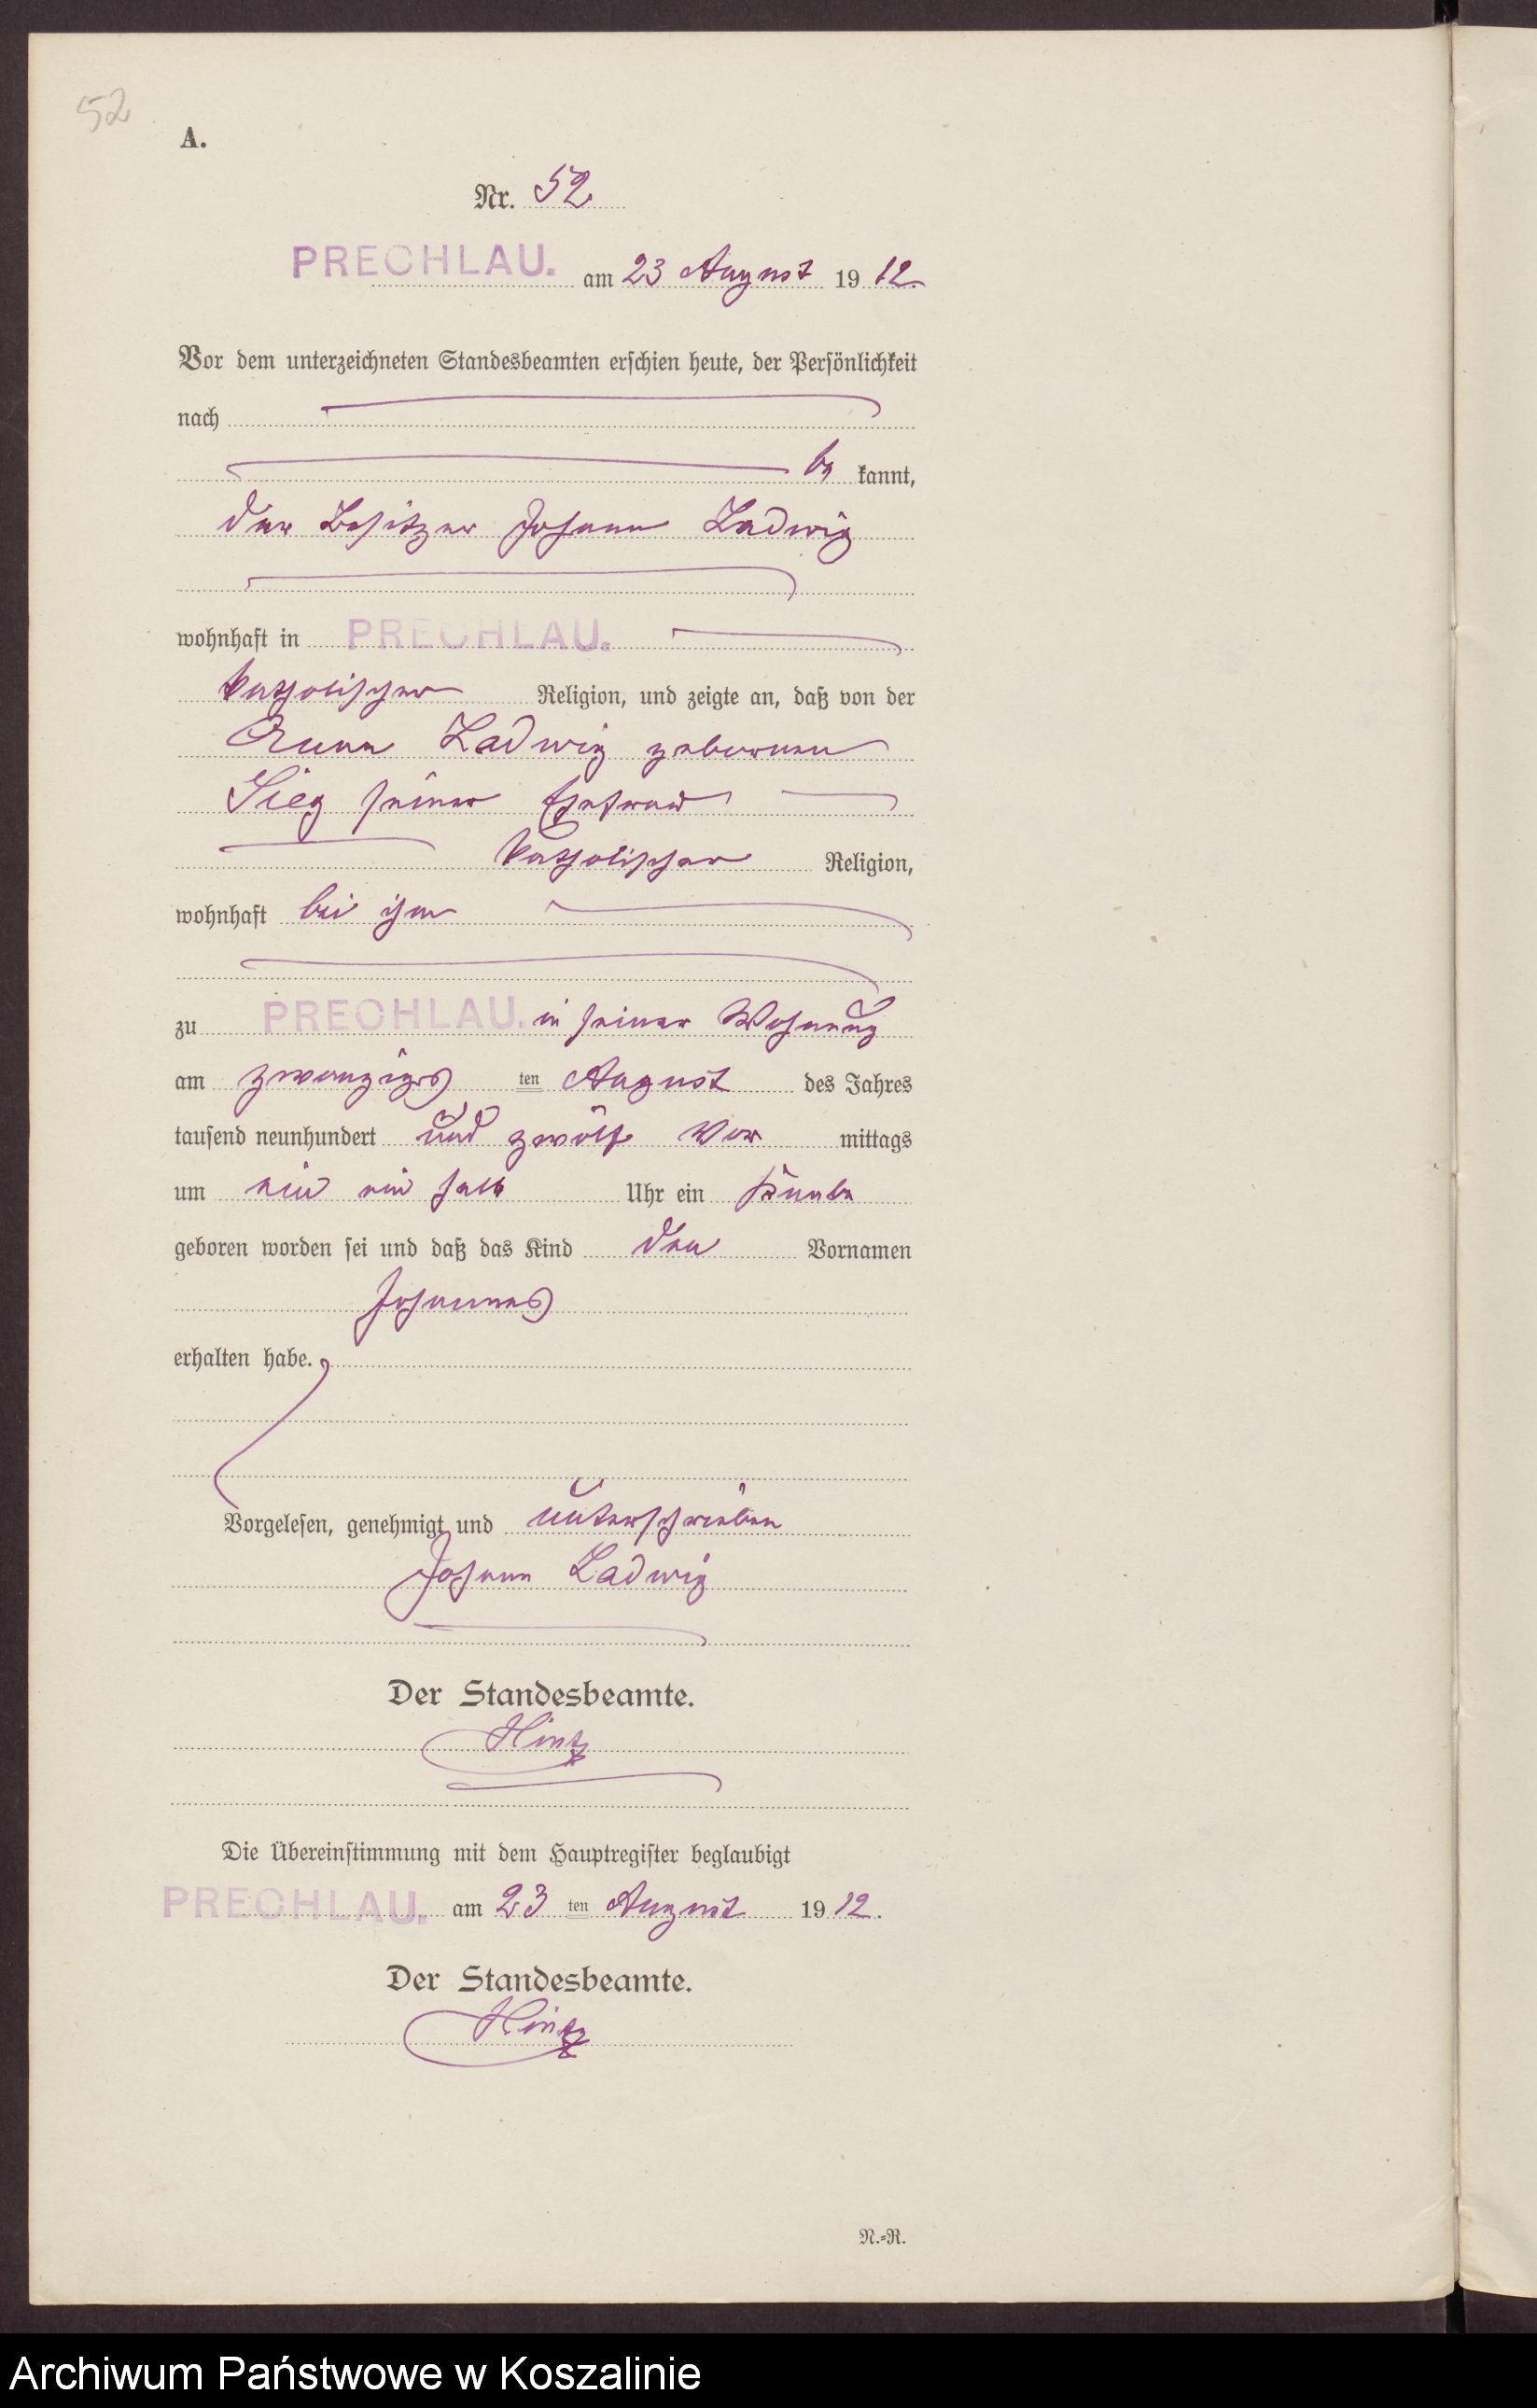 52
A.
Nr. 52
PRECHLAU. am 23 August 1912.
Vor dem unterzeichneten Standesbeamten erschien heute, der Persönlichkeit
nach
be kannt,
der Besitzer Johann Ladwig
wohnhaft in PRECHLAU.
katholischer Religion, und zeigte an, daß von der
Anna Ladwig geborenen
Sieg seiner Ehefrau
katholischer Religion,
wohnhaft bei ihm
zu PRECHLAU. in seiner Wohnung
am zwanzigs ten August des Jahres
tausend neunhundert und zwölf Vor mittags
um ein ein halb Uhr ein Knabe
geboren worden sei und daß das Kind den Vornamen
Johannes
erhalten habe.
Vorgelesen, genehmigt und unterschrieben
Johann Ladwig
Der Standesbeamte.
Hintz
Die Übereinstimmung mit dem Hauptregister beglaubigt
PRECHLAU. am 23 ten August 1912.
Der Standesbeamte.
Hintz
N.=R.
Archiwum Państwowe w Koszalinie